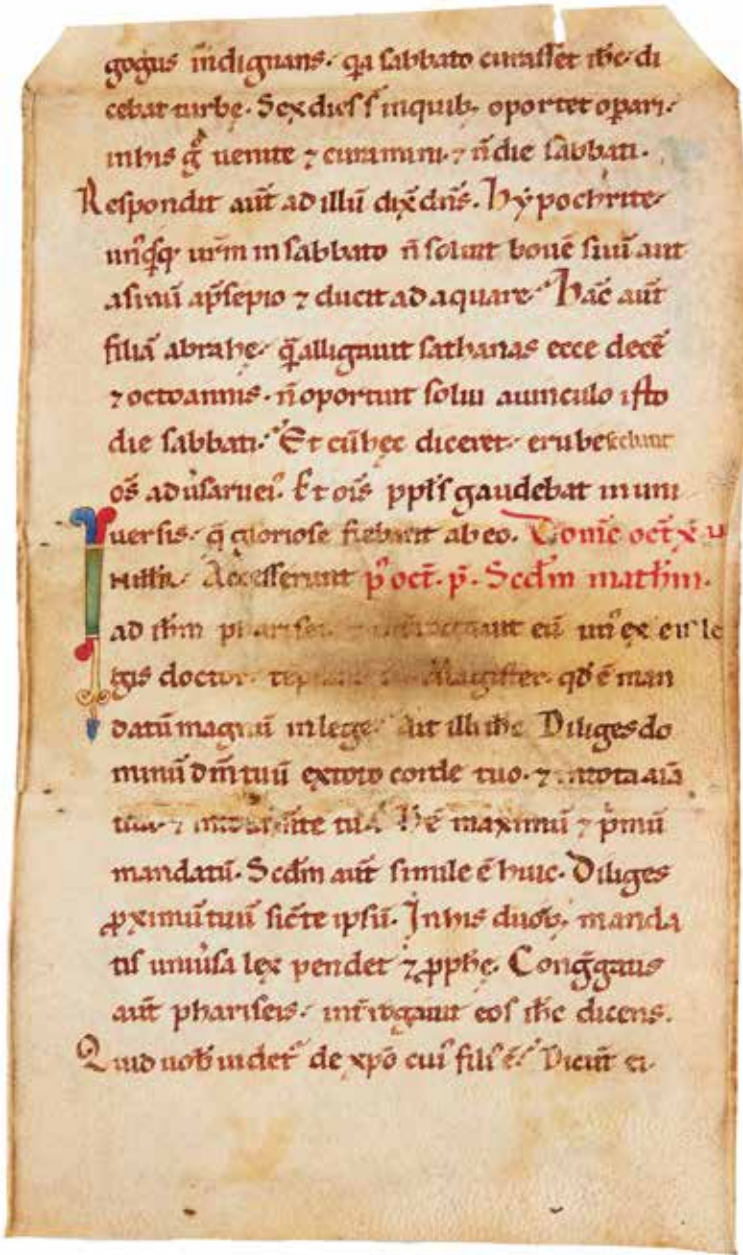 gogus indignans. qa sabbato curasset ihc. di
cebat turbę. Sex dies s̄ inquib; oportet opari.
inhis g̊ uenite ⁊ curamini. ⁊ n̄ die sabbati.
Respondit aut̄ ad illū dix̄ dn̄s. hypochrite
un̄qsq; ur̄m in sabbato n̄ soluit bouē suū aut
asinū ap̄sepio ⁊ ducit ad aquare. hāc aut̄
filiā abrahę. q̄ alligauit sathanas ecce decē
⁊ octoannis. n̄ oportuit solui auinculo isto
die sabbati. Et cū hęc diceret. erubescebant
oōs aduersarii ei'. Et oīs ppl's gaudebat in uni
uersis. q̄ gloriose fiebant ab eo. Domic̄ oct̄ x̄ u
N illıs. Accesserunt p' oct̄. p̄. Scd̄m math̄m.
ad ihm pharisei ⁊ int̄rogauit eū un' ex eis le
gis doctor. Magister. qd̄ ē man
datū magnū in lege. Ait illi ihc Diliges do
minū dm̄ tuū extoto corde tuo. ⁊ intota aīa
tua ⁊ in tota m̄te tua. H̄ ē maximū ⁊ p̄mū
mandatū. Scd̄m aut̄ simile ē huic. Diliges
ꝓximū tuū sic̄ te ipsū. In his duob; manda
tis uniūsa lex pendet ⁊ ꝓphę. Congḡatis
aut̄ phariseis. int̄rogauit eos ihc dicens.
Quid uob̄ uidet' de xp̄o cui' fili' ē. Dicūt ei